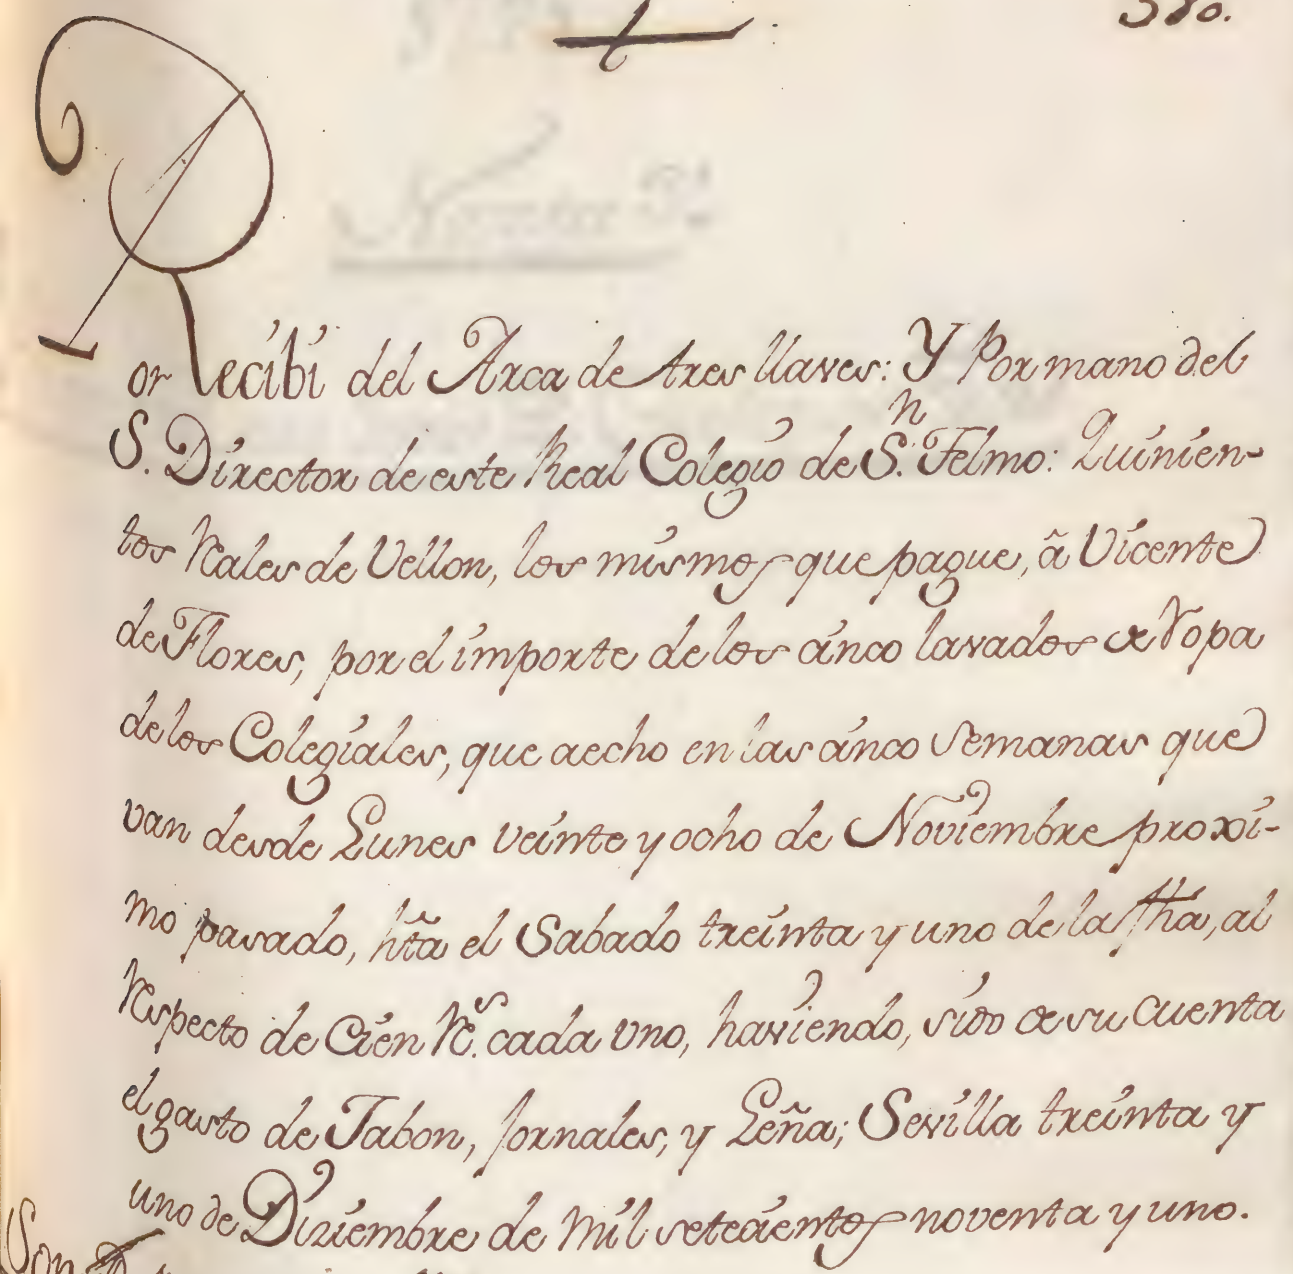 Recibi del Arca de tres llaves: Y Por mano del
Sor. Director de este Real Colegio de Sn. Telmo: Quinien-
tos Rales de Vellon, los mismos que pague, â Vicente
de Flores, por el importe de los cinco lavados de Ropa
de los Colegiales, que aecho en las cinco Semanas que
van desde Lunes veinte y ocho de Noviembre proxi-
mo pasado, hta el Sabado treinta y uno de la fha, al
Respecto de Cien Rs. cada uno, haviendo, sido de su cuenta
el gasto de Jabon, Jornales, y Leña; Sevilla treinta y
uno de Diziembre de Mil setecientos noventa y uno.
Son